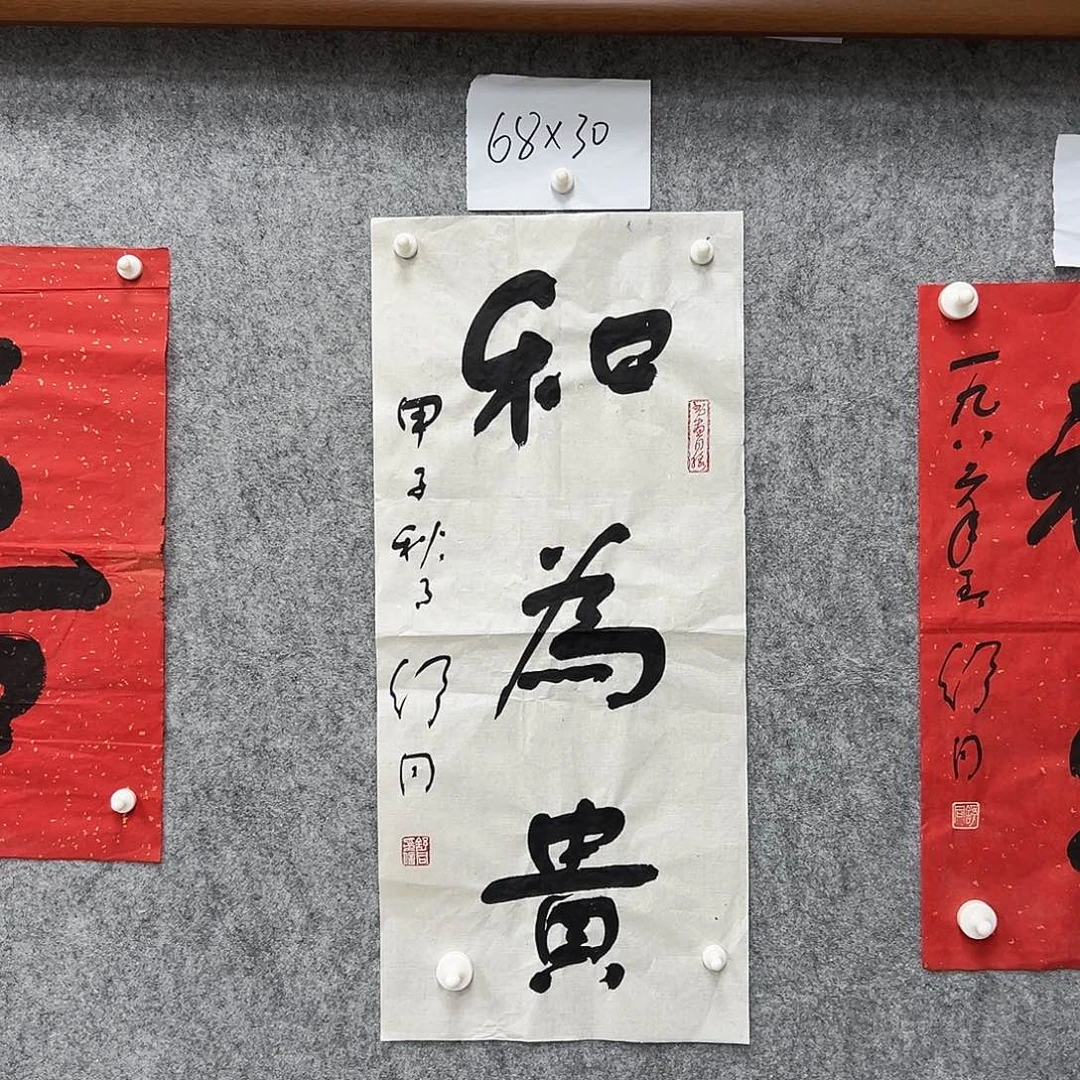 68×30
和為貴
甲子秋月
舒同
一九八六年玉
舒同